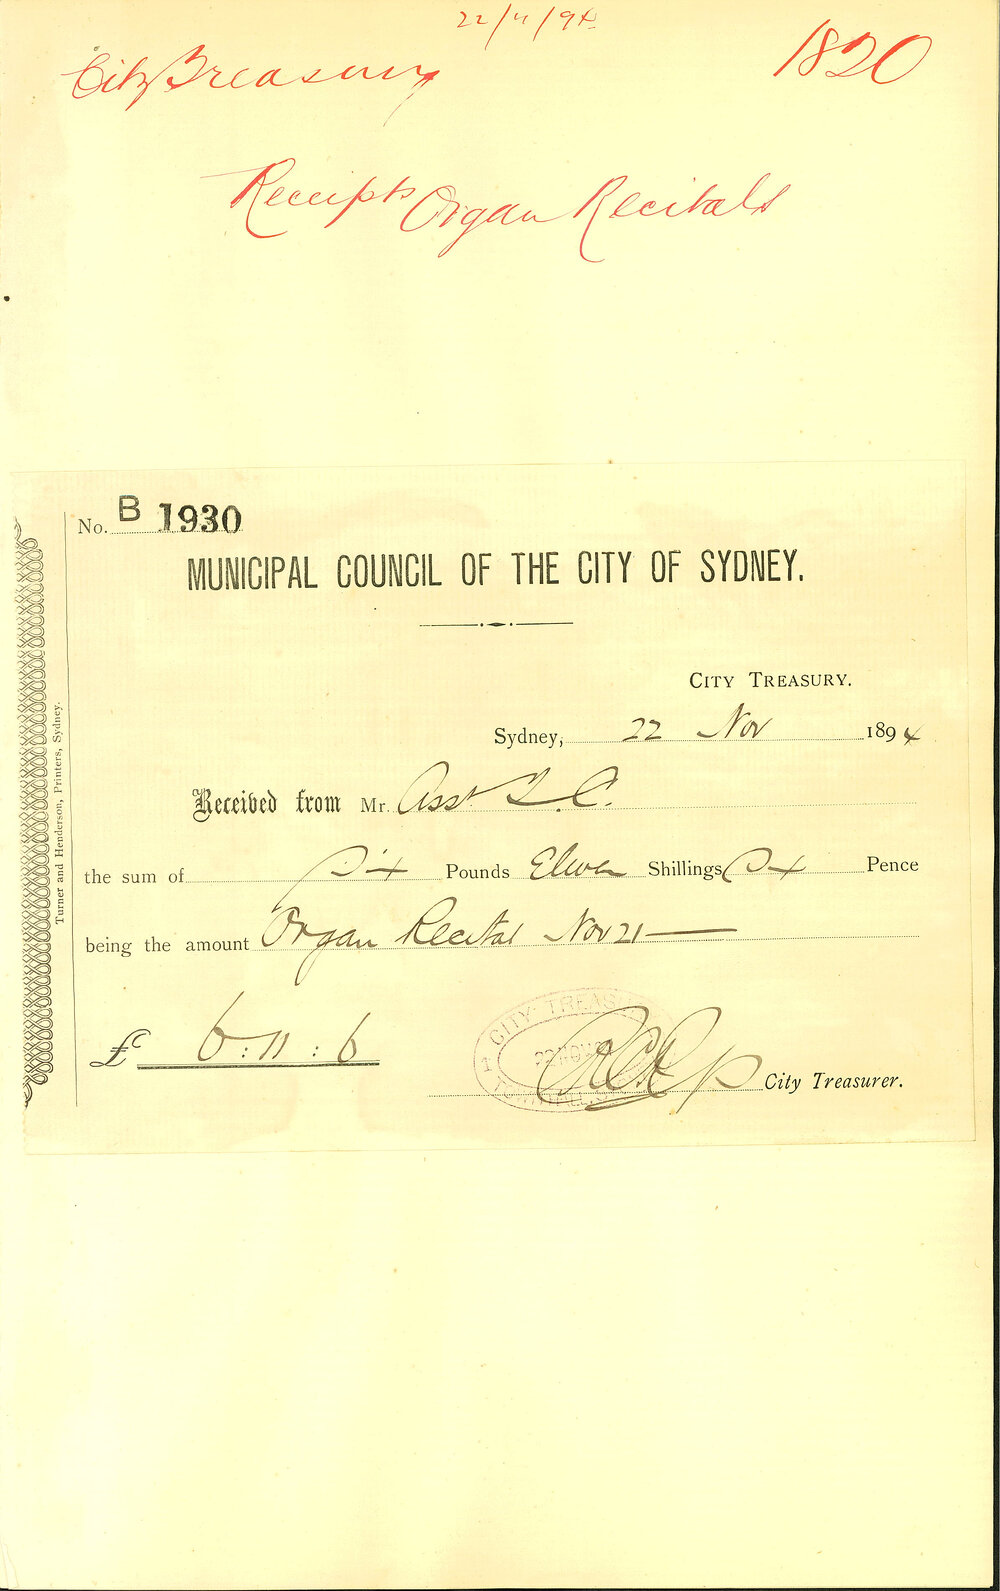 22/11/94
City Treasury 1820
Receipts Organ Recitals
No. B 1930
MUNICIPAL COUNCIL OF THE CITY OF SYDNEY.
CITY TREASURY.
Sydney, 22 Nov 1894
Received from Mr. Asst T. C.
the sum of Six Pounds Eleven Shillings Six Pence
being the amount Organ Recital Nov 21
£ 6 : 11 : 6
CITY TREAS
22 NOV
TOWN HALL
City Treasurer.
Turner and Henderson, Printers, Sydney.